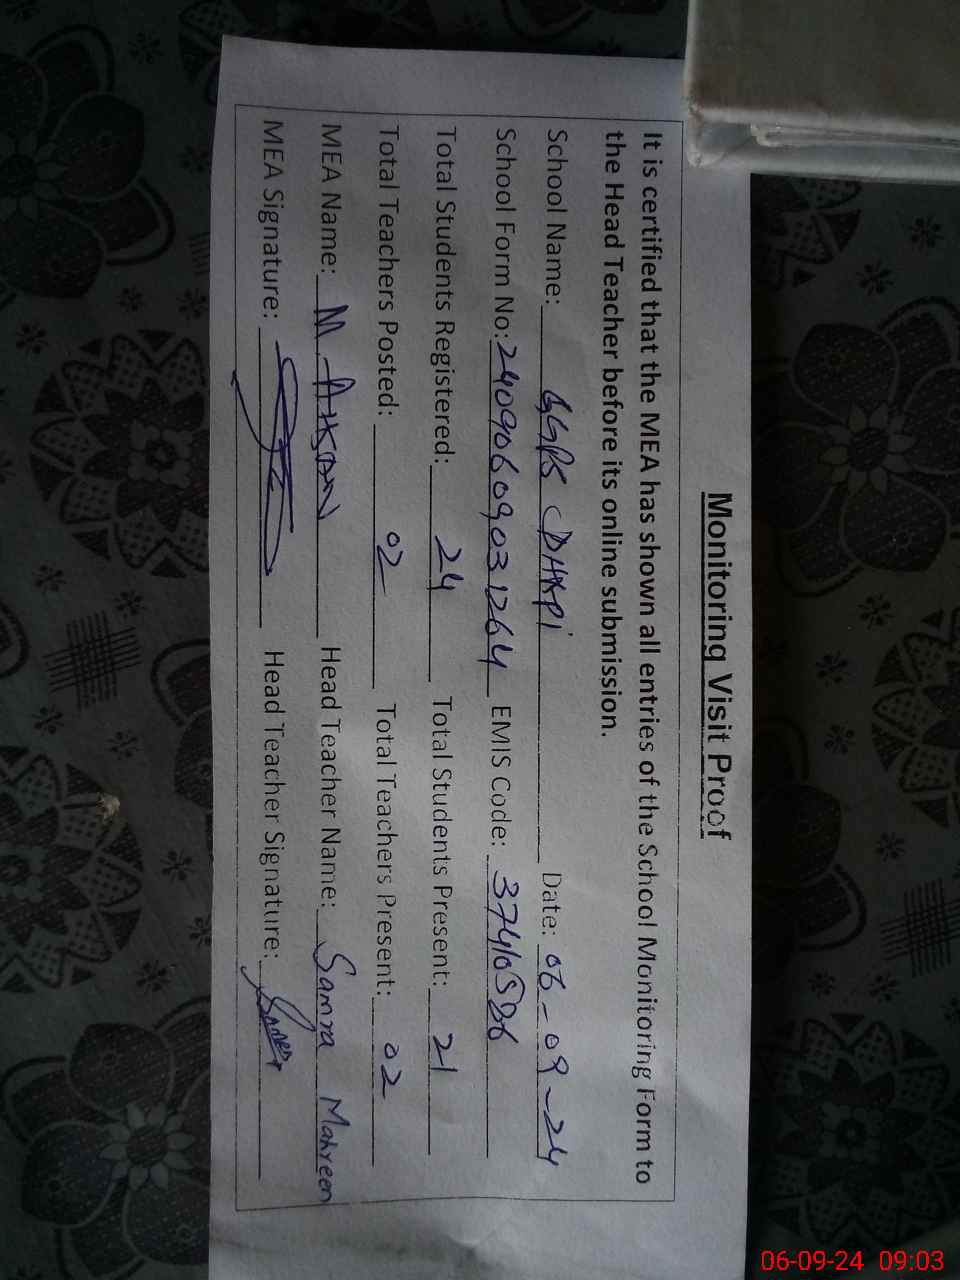 Monitoring Visit Proof
It is certified that the MEA has shown all entries of the School Monitoring Form to
the Head Teacher before its online submission.
School Name: GGPS DHAPi Date: 06-09-24
School Form No: 24090609031264 EMIS Code: 37410586
Total Students Registered: 24 Total Students Present: 21
Total Teachers Posted: 02 Total Teachers Present: 02
MEA Name: M. AHSAN Head Teacher Name: Samra Mahreen
MEA Signature: Head Teacher Signature:
06-09-24 09:03